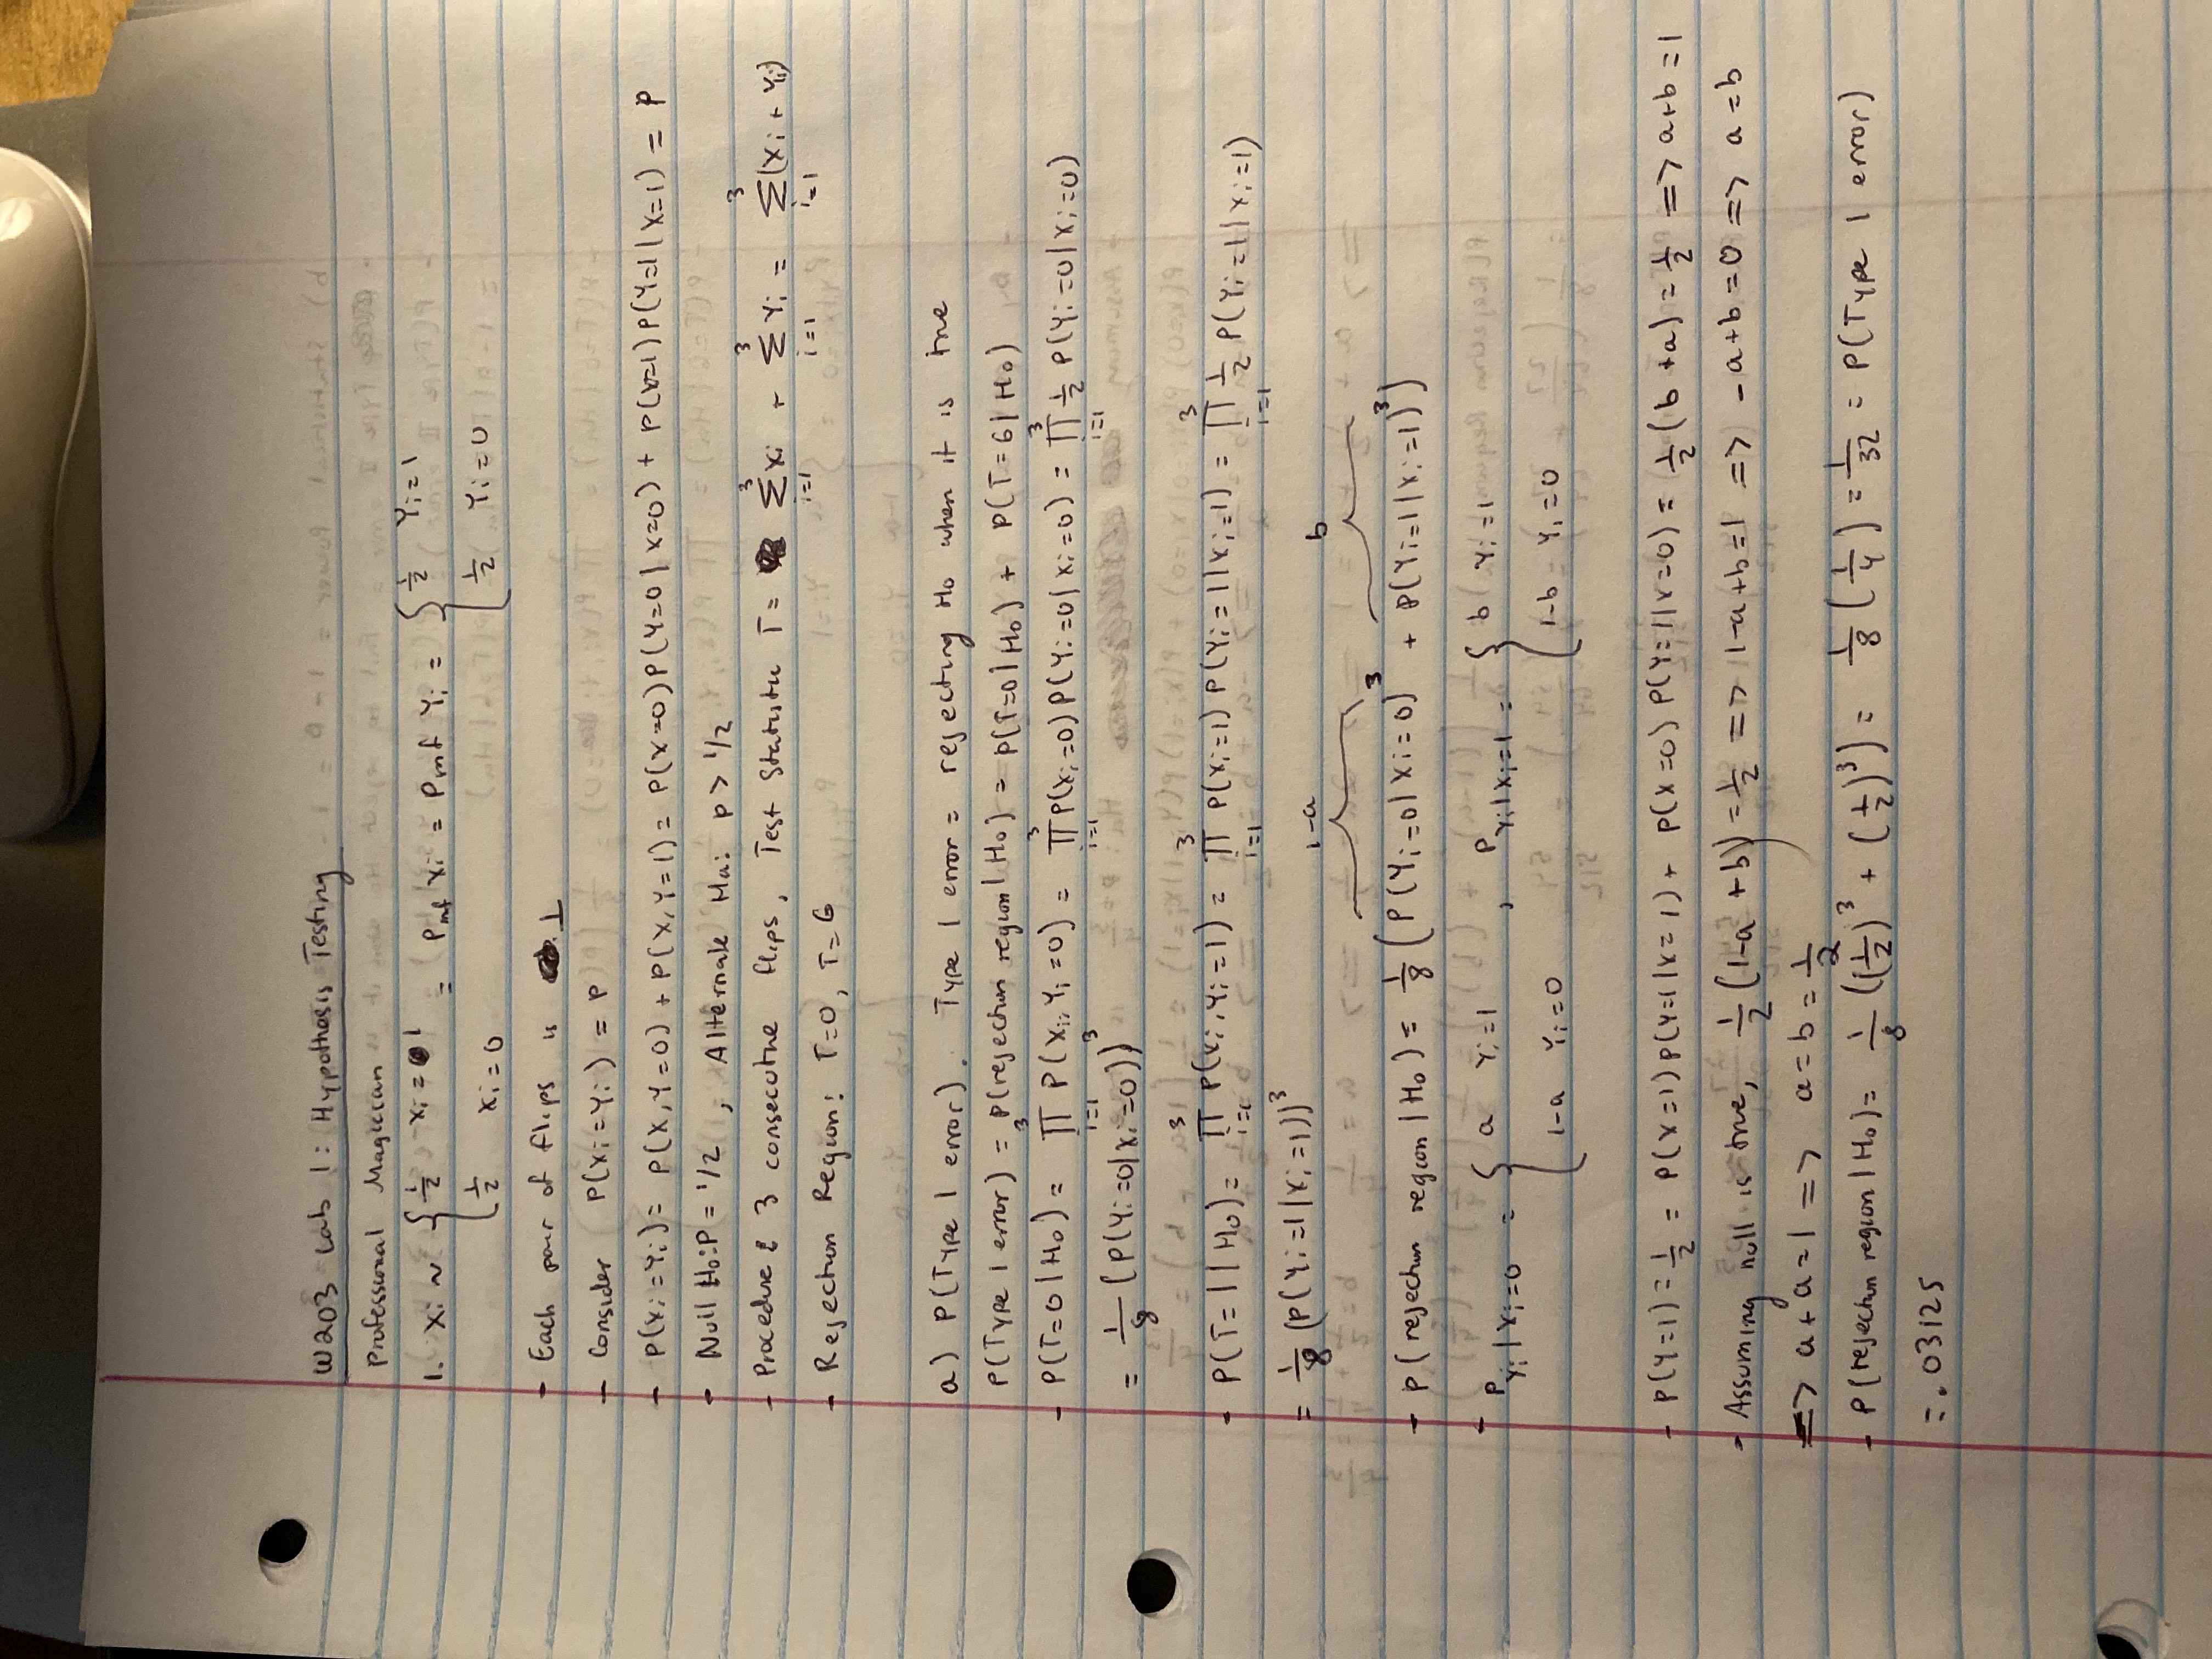 W203 Lab 1: Hypothesis Testing
Professional Magician
1. Xi ~ { 1/2 Xi = 1 = Pmf Xi = Pmf Yi = { 1/2 Yi = 1
1/2 Xi = 0 1/2 Yi = 0
- Each pair of flips is ⊥
- Consider P(Xi = Yi) = P
- P(Xi=Yi) = P(X,Y=0) + P(X,Y=1) = P(X=0)P(Y=0|X=0) + P(X=1)P(Y=1|X=1) = P
- Null Ho: P = 1/2, Alternate Ha: p > 1/2
- Procedure: 3 consecutive flips, Test Statistic T = Σ_{i=1}^{3} Xi + Σ_{i=1}^{3} Yi = Σ_{i=1}^{3} (Xi + Yi)
- Rejection Region: T=0, T=6
a) P(Type 1 error). Type 1 error = rejecting Ho when it is true
P(Type 1 error) = P(rejection region | Ho) = P(T=0|Ho) + P(T=6|Ho)
- P(T=0|Ho) = ∏_{i=1}^{3} P(Xi,Yi=0) = ∏_{i=1}^{3} P(Xi=0)P(Yi=0|Xi=0) = ∏_{i=1}^{3} 1/2 P(Yi=0|Xi=0)
= 1/8 (P(Yi=0|Xi=0))^3
- P(T=1|Ho) = ∏_{i=1}^{3} P(Xi,Yi=1) = ∏_{i=1}^{3} P(Xi=1)P(Yi=1|Xi=1) = ∏_{i=1}^{3} 1/2 P(Yi=1|Xi=1)
= 1/8 (P(Yi=1|Xi=1))^3
1-a b
- P(rejection region | Ho) = 1/8 (P(Yi=0|Xi=0)^3 + P(Yi=1|Xi=1)^3)
- P_{Yi|Xi=0} = { a Yi=1 , P_{Yi|Xi=1} = { b Yi=1
1-a Yi=0 1-b Yi=0
- P(Y=1) = 1/2 = P(X=1)P(Y=1|X=1) + P(X=0)P(Y=1|X=0) = 1/2 (b+a) = 1/2 => a+b=1
- Assuming null is true, 1/2 (1-a+b) = 1/2 => 1-a+b=1 => -a+b=0 => a=b
=> a+a=1 => a=b=1/2
- P(rejection region | Ho) = 1/8 ((1/2)^3 + (1/2)^3) = 1/8 (1/4) = 1/32 = P(Type 1 error)
= .03125